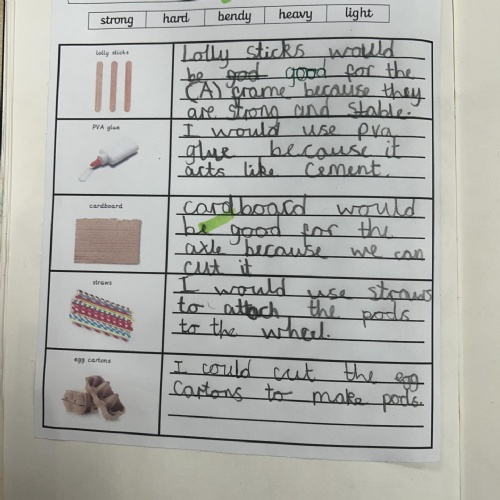 strong hard bendy heavy light
lolly sticks
Lolly sticks would
be god good for the
(A) frame because they
are strong and stable.
PVA glue
I would use pva
glue because it
acts like cement.
cardboard
cardboard would
be good for the
axle because we can
cut it
straws
I would use straws
to attach the pods
to the wheel.
egg cartons
I could cut the egg
cartons to make pods.